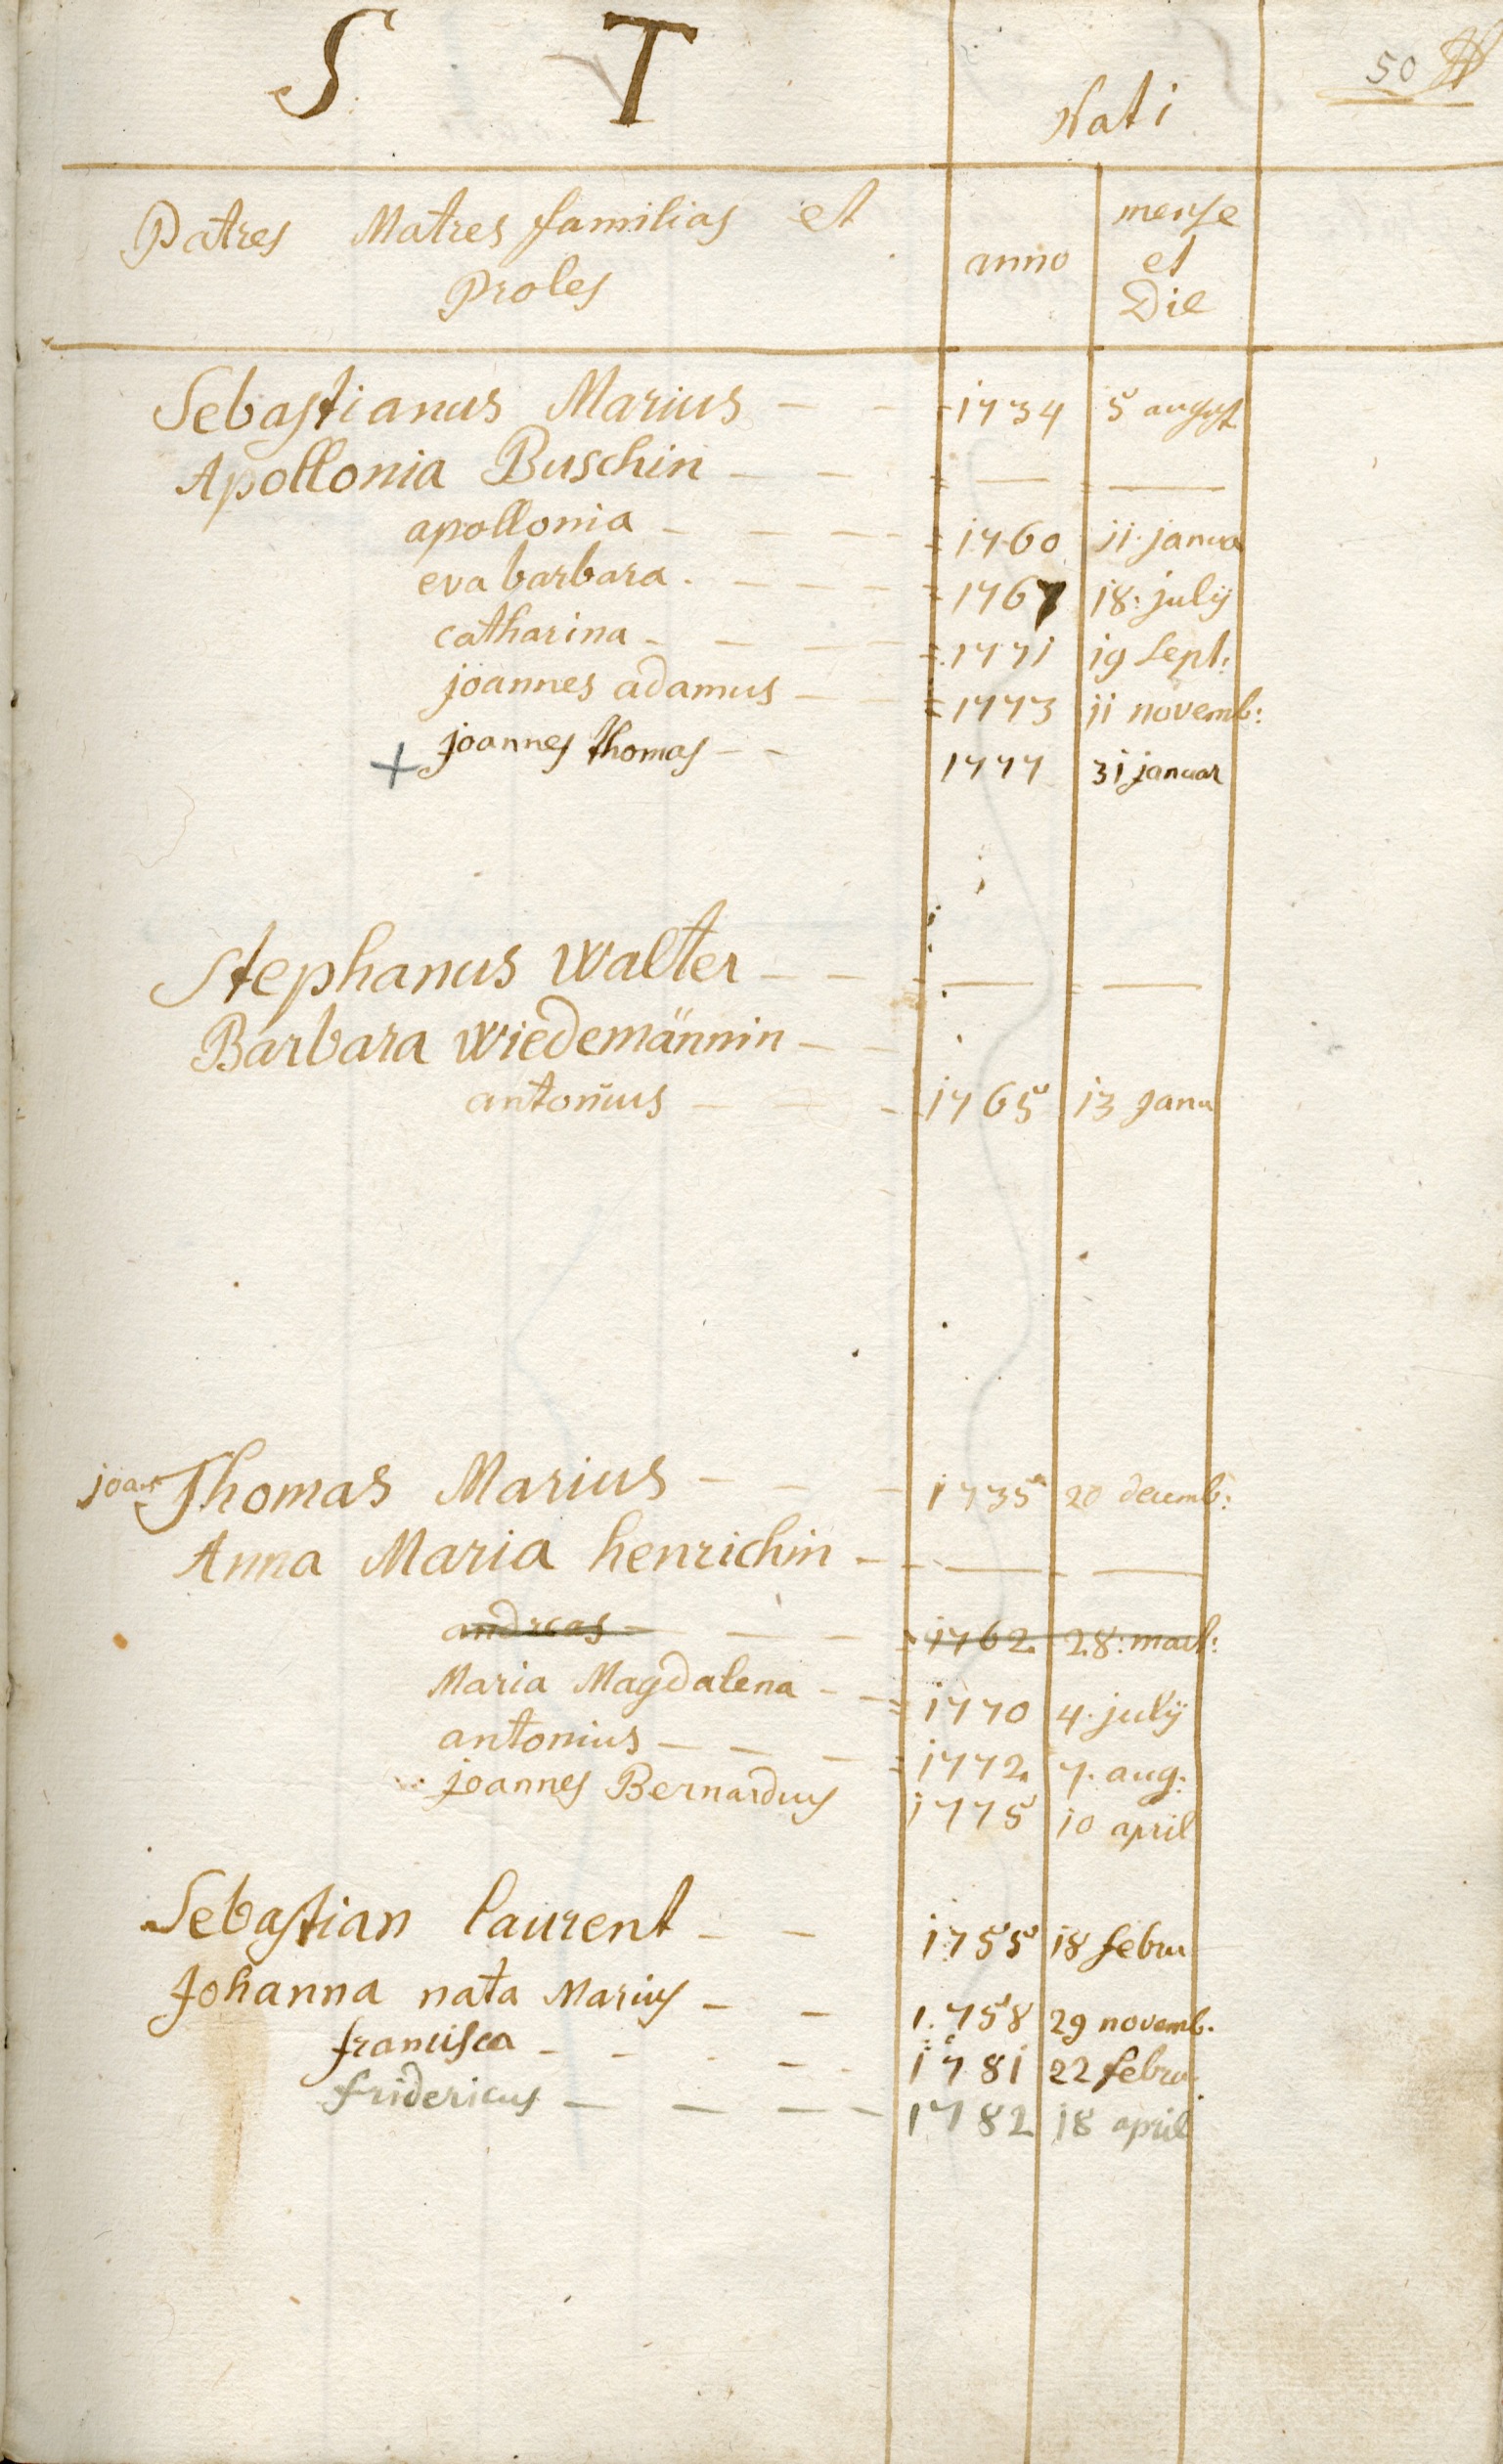 S T
Nati
50
Patres Matres familias et
Proles
anno
mense
et
Die
Sebastianus Marius - - - 1734 5 august
Apollonia Buschin - - - — —
apollonia - - - - 1760 11. janua
eva barbara. - - - 1767 18: julÿ
catharina - - - - 1771 19 sept:
joannes adamus - - 1773 11 novemb:
+ joannes thomas - - 1777 31 januar
Stephanus Walter - - - — —
Barbara Wiedemännin - -
antonius - - - 1765 13 Janu
joan Thomas Marius - - - 1735 20 decemb:
Anna Maria henrichin - - — —
andreas - - - 1762. 28: mart:
Maria Magdalena - - 1770 4. julÿ
antonius - - - 1772. 7. aug:
joannes Bernardus 1775 10 april
Sebastian laurent - - 1755 18 febru
Johanna nata Marius - - 1.758 29 novemb.
francisca - - - - - 1781 22 febru.
fridericus - - - - 1782 18 april